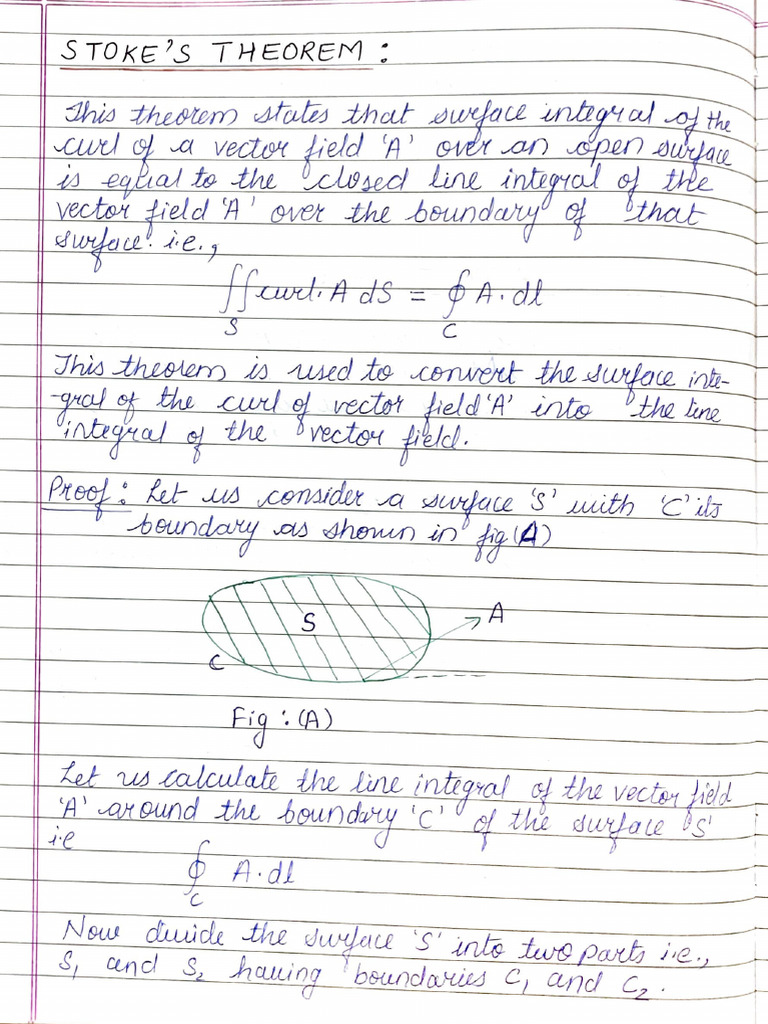 STOKE'S THEOREM :
This theorem states that surface integral of the
curl of a vector field 'A' over an open surface
is equal to the closed line integral of the
vector field 'A' over the boundary of that
surface. i.e.,
∬ curl. A dS = ∮ A. dl
S C
This theorem is used to convert the surface inte-
-gral of the curl of vector field 'A' into the line
integral of the vector field.
Proof : Let us consider a surface 'S' with 'C' its
boundary as shown in fig (A)
A
S
C
Fig : (A)
Let us calculate the line integral of the vector field
'A' around the boundary 'C' of the surface 'S'
i.e
∮ A. dl
C
Now divide the surface 'S' into two parts i.e.,
S₁ and S₂ having boundaries C₁ and C₂.